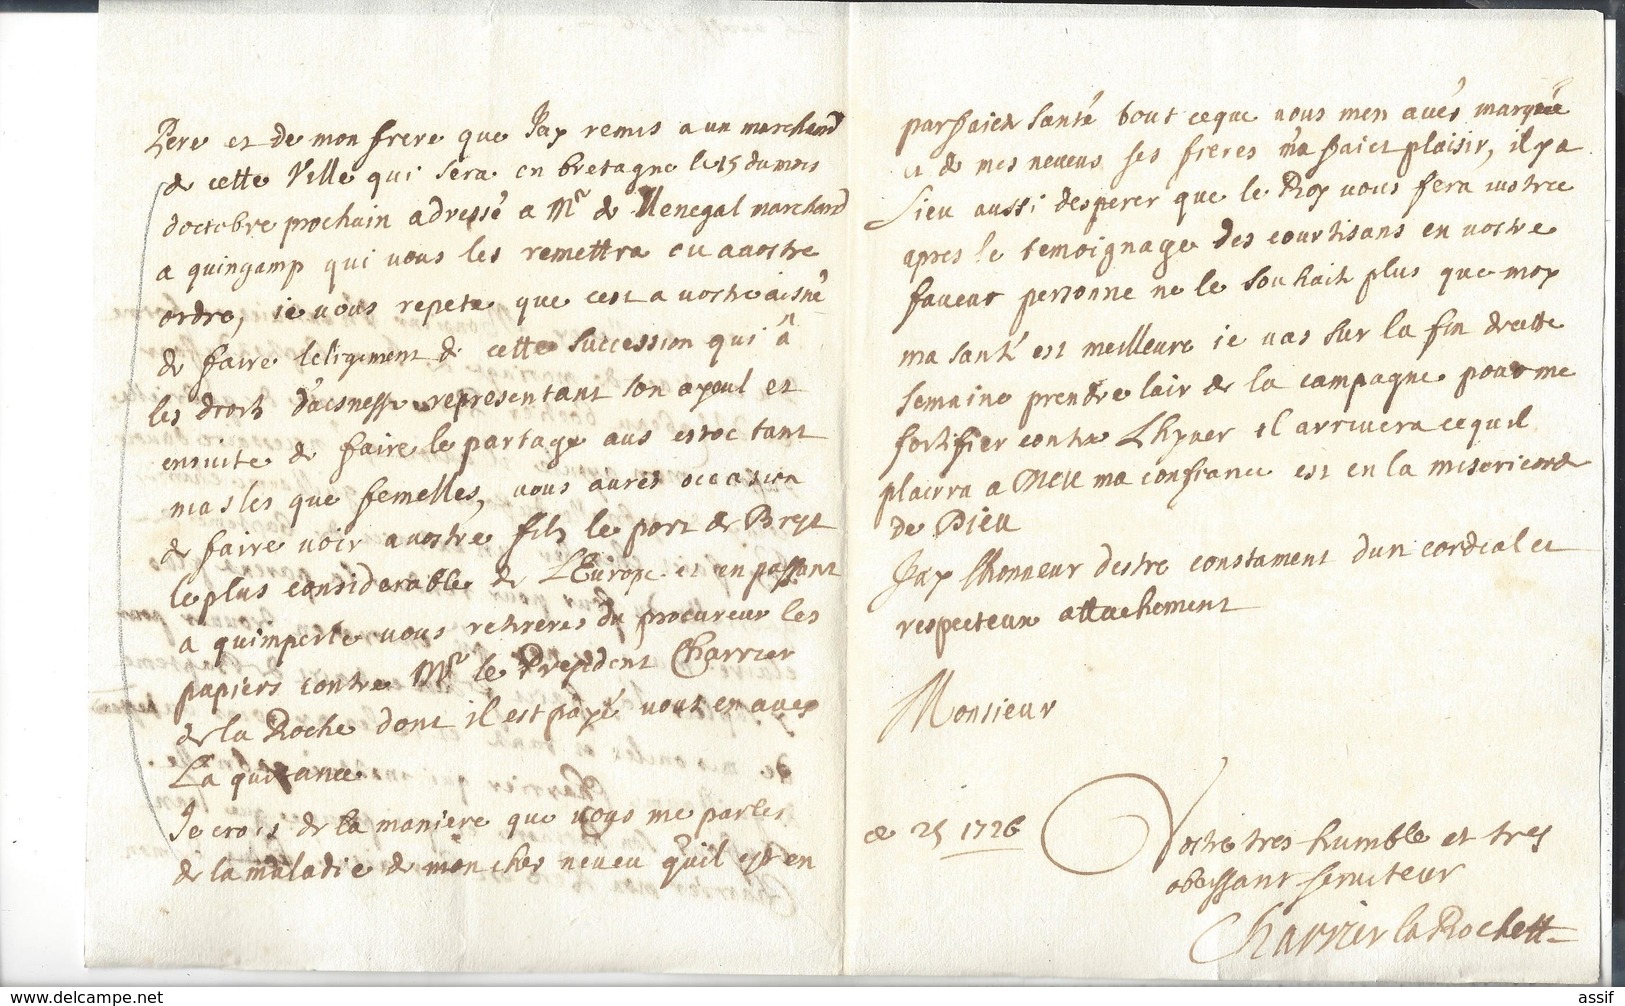 Pere et de mon frere que Jay remis a un marchand
de cette Ville qui sera en bretagne le 15 du mois
doctobre prochain adressé a Mr de Menegal marchand
a quingamp qui vous les remettra ou avostre
ordre, ie vous repete que cest a vostre aisné
de faire leligement de cette succession qui â
les droits d'aisnesse representant son ayoul et
ensuite de faire le partage aus estoc tant
masles que femelles, vous aurés occasion
de faire voir avostre fils le port de Brest
le plus considerable de LEurope et en passant
a quimperle vous retirerés du procureur les
papiers contre Mr le President Charrier
de la Roche dont il est payé vous en avez
La quitance
Je crois de la maniere que vous me parlés
de la maladie de mon cher neveu qu'il est en
parfaicte santé tout ceque vous men avés marqué
et de mes neveus ses freres m'a faict plaisir, il y a
Lieu aussi desperer que le Roy vous fera iustice
apres le temoignage des courtisans en vostre
faveur personne ne le souhait plus que moy
ma santé est meilleure ie vas sur la fin de cette
semaine prendre lair de la campagne pour me
fortifier contre Lhyver il arrivera ce quil
plairra a Dieu ma confiance est en la misericorde
de Dieu
Jay lhonneur destre constament dun cordial et
respecteux attachement
Monsieur
ce 25 1726
Vostre tres humble et tres
obeissant serviteur
Charrier la Rochette
assif
https://www.delcampe.net